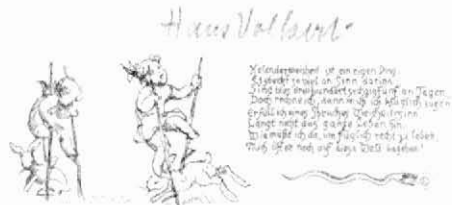 Hans Volkert
Kalenderweisheit ist ein eigen Ding.
Es steckt so viel an Sinn darin
Sind blos dreihundertsechzigfünf an Tagen
Doch rechne ich, dann muß ich sagen
Erfüll ich eines Spruches Weisheit
Langt nicht das ganze Leben hin.
Wie müßt ich da, um füglich recht zu leben,
Mich öfter noch auf diese Welt begeben!